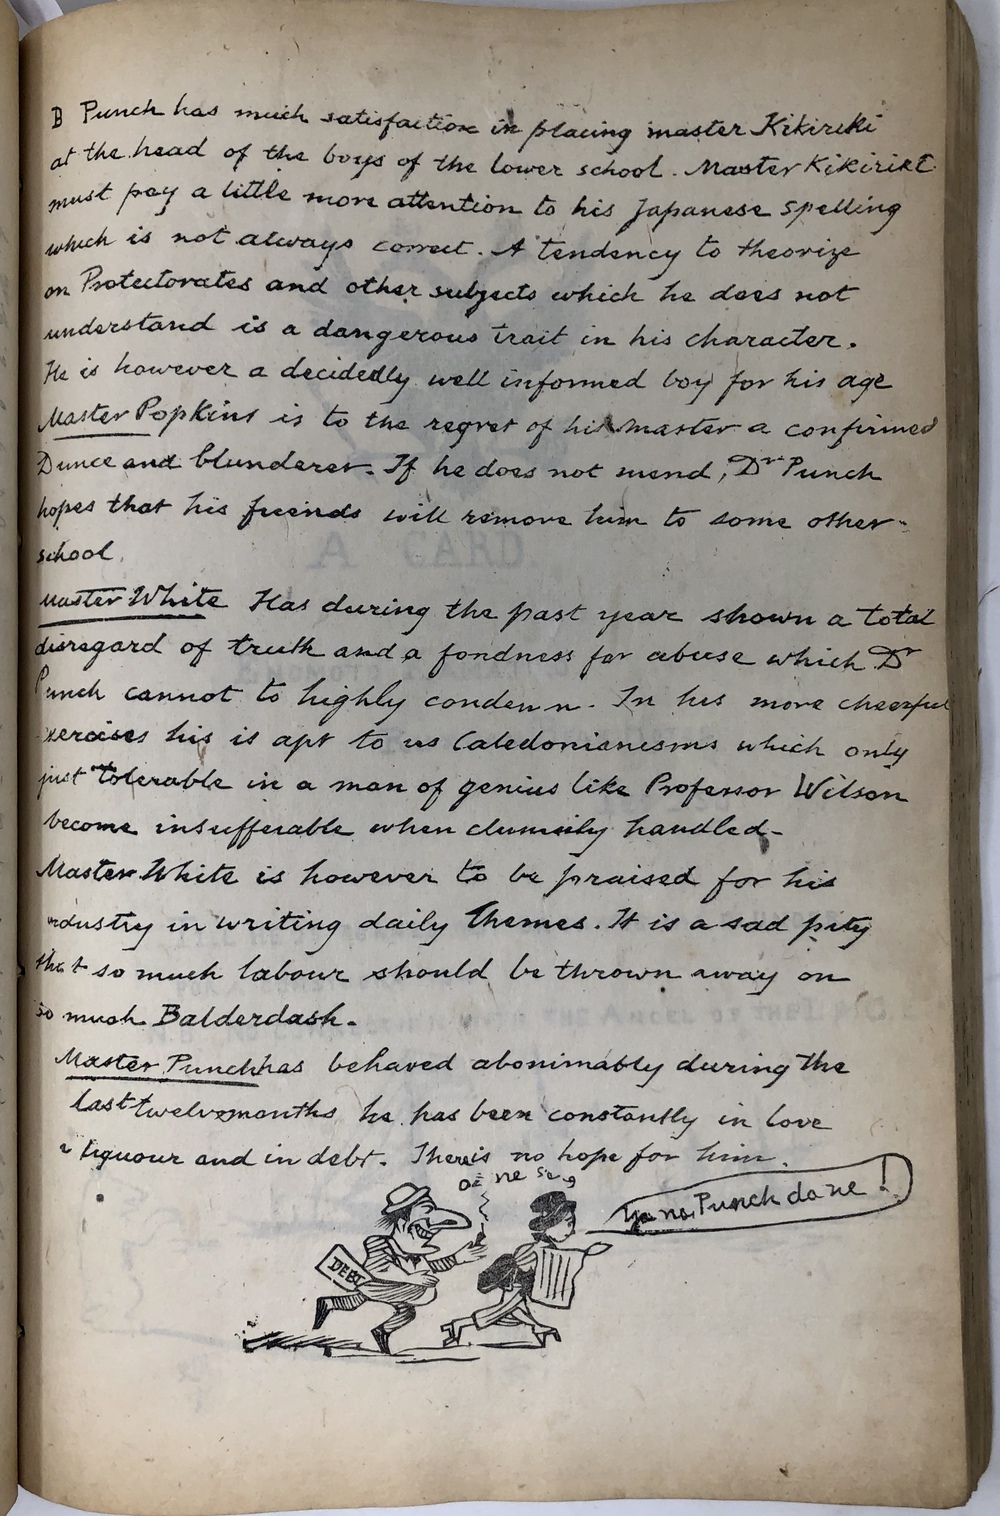 B Punch has much satisfaction in placing master Kikiriki
at the head of the boys of the lower school. Master Kikiriki
must pay a little more attention to his Japanese spelling
which is not always correct. A tendency to theorize
on Protectorates and other subjects which he does not
understand is a dangerous trait in his character.
He is however a decidedly well informed boy for his age
Master Popkins is to the regret of his master a confirmed
Dunce and blunderer. If he does not mend, Dr Punch
hopes that his friends will remove him to some other
school.
Master White Has during the past year shown a total
disregard of truth and a fondness for abuse which Dr
Punch cannot to highly condenn. In his more cheerful
exercises his is apt to us Caledonianesms which only
just tolerable in a man of genius like Professor Wilson
become insufferable when clumsily handled-
Master White is however to be praised for his
industry in writing daily Themes. It is a sad pity
that so much labour should be thrown away on
so much Balderdash.
Master Punch has behaved abonimably during the
last twelvemonths he has been constantly in love
liquour and in debt. There is no hope for him.
Punch da ne!
DEBT
A CARD